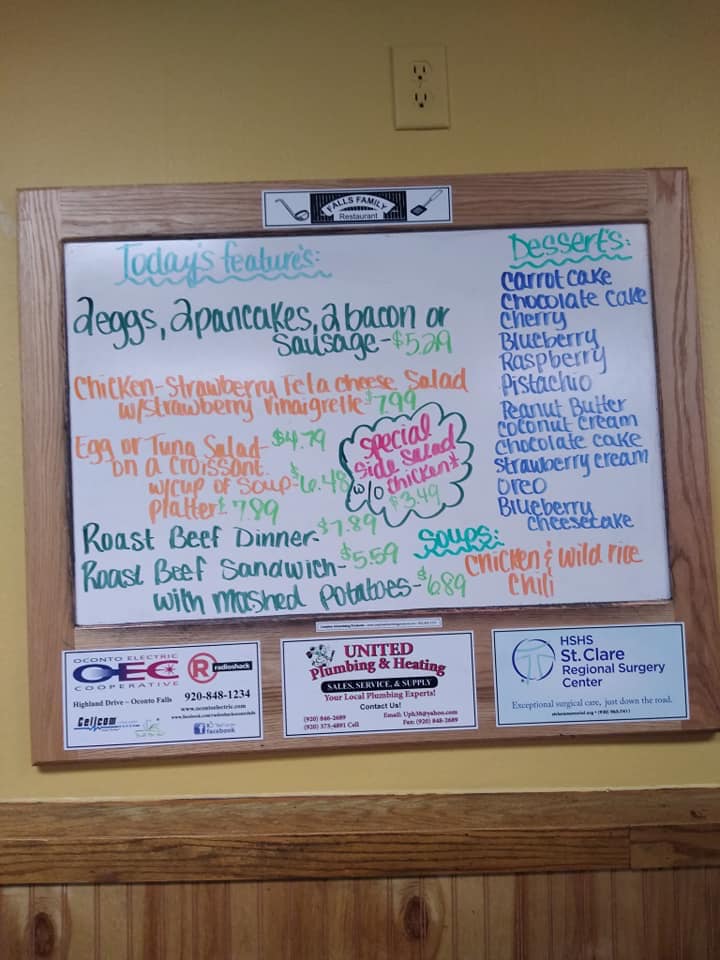 FALLS FAMILY
Restaurant
Today's feature's:
2 eggs, 2 pancakes, 2 bacon or
sausage - $5.29
Chicken-Strawberry Feta cheese Salad
w/strawberry vinaigrette $7.99
Egg or Tuna Salad - $4.79
on a croissant
w/cup of soup - $6.48
platter $7.89
special
side salad
w/o chicken*
$3.49
Roast Beef Dinner - $7.89
Roast Beef Sandwich - $5.59
with mashed potatoes - $6.89
Dessert's:
carrot cake
chocolate cake
cherry
Blueberry
Raspberry
Pistachio
Peanut Butter
coconut cream
chocolate cake
strawberry cream
oreo
Blueberry
cheesecake
Soups:
Chicken & wild rice
Chili
OCONTO ELECTRIC
OEC
COOPERATIVE
R radioshack
920-848-1234
Highland Drive – Oconto Falls
www.ocontoelectric.com
Cellcom
facebook
UNITED
Plumbing & Heating
SALES, SERVICE, & SUPPLY
Your Local Plumbing Experts!
Contact Us!
(920) 846-2689
Email: Uph36@yahoo.com
(920) 373-4891 Cell
Fax: (920) 848-2689
HSHS
St. Clare
Regional Surgery
Center
Exceptional surgical care, just down the road.